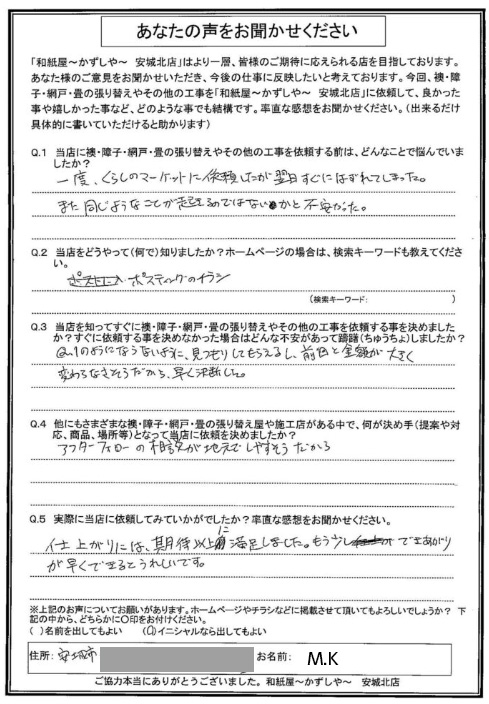 あなたの声をお聞かせください
「和紙屋~かずしや~ 安城北店」はより一層、皆様のご期待に応えられる店を目指しております。
あなた様のご意見をお聞かせいただき、今後の仕事に反映したいと考えております。今回、襖・障
子・網戸・畳の張り替えやその他の工事を「和紙屋~かずしや~ 安城北店」に依頼して、良かった
事や嬉しかった事など、どのような事でも結構です。率直な感想をお聞かせください。(出来るだけ
具体的に書いていただけると助かります)
Q.1 当店に襖・障子・網戸・畳の張り替えやその他の工事を依頼する前は、どんなことで悩んでいま
したか?
一度、くらしのマーケットに依頼したが翌日すぐにはずれてしまった。
また同じようなことが起きるのではないかと不安だった。
Q.2 当店をどうやって(何で)知りましたか?ホームページの場合は、検索キーワードも教えてくださ
い。
ポスティングのチラシ
(検索キーワード: )
Q.3 当店を知ってすぐに襖・障子・網戸・畳の張り替えやその他の工事を依頼する事を決めました
か?すぐに依頼する事を決めなかった場合はどんな不安があって躊躇(ちゅうちょ)しましたか?
Q.1のようにならないように、見つもりしてもらえるし、前回と金額が大きく
変わらなさそうだから、早く決断した。
Q.4 他にもさまざまな襖・障子・網戸・畳の張り替え屋や施工店がある中で、何が決め手(提案や対
応、商品、場所等)となって当店に依頼を決めましたか?
アフターフォローの相談が地元でしやすそうだから
Q.5 実際に当店に依頼してみていかがでしたか?率直な感想をお聞かせください。
仕上がりには、期待以上に満足しました。もう少しできあがり
が早くできるとうれしいです。
※上記のお声についてお願いがあります。ホームページやチラシなどに掲載させて頂いてもよろしいでしょうか? 下
記の中から、どちらかに○印をお付けください。
( )名前を出してもよい (○)イニシャルなら出してもよい
住所: 安城市 お名前: M.K
ご協力本当にありがとうございました。和紙屋~かずしや~ 安城北店